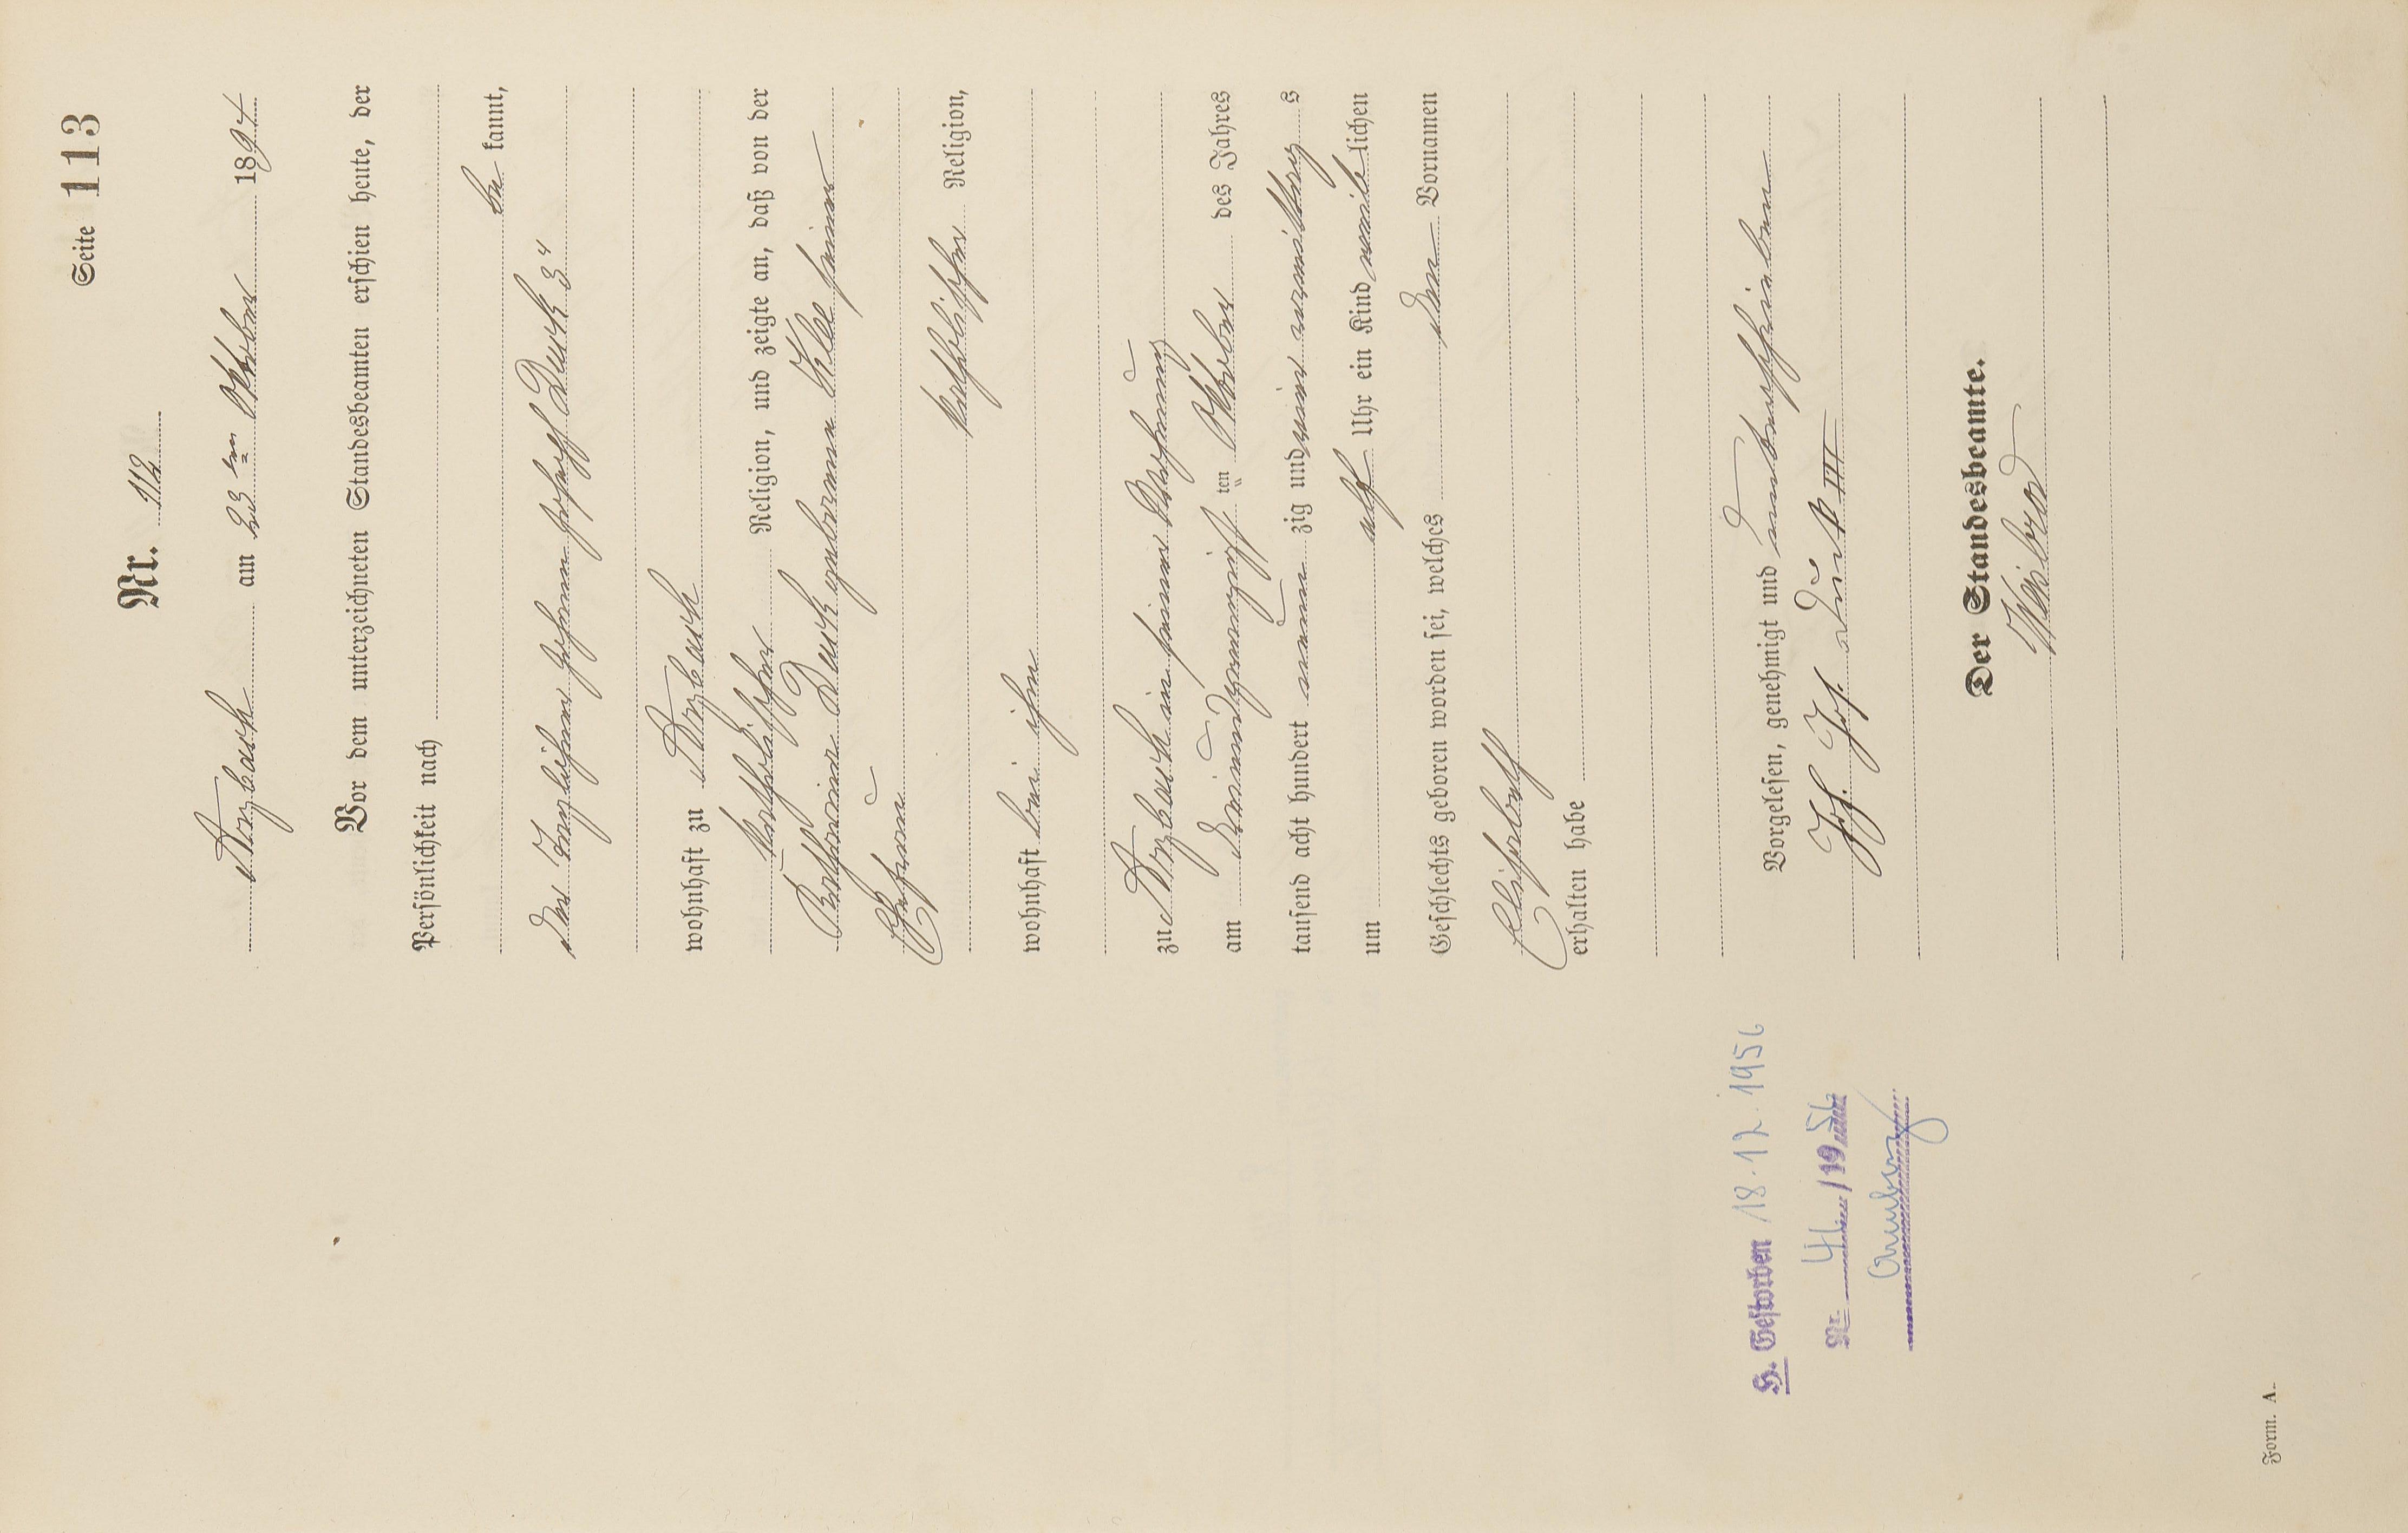 Seite 113
Nr. 112
Arzbach am 23ten Oktober 1894
Vor dem unterzeichneten Standesbeamten erschien heute, der
Persönlichkeit nach
be kannt,
der Johann Joseph 3"
wohnhaft zu Arzbach
katholischer Religion, und zeigte an, daß von der
Katharina geborenen Klee seiner
Ehefrau
katholischer Religion,
wohnhaft bei ihm
zu Arzbach in seiner Wohnung
am dreiundzwanzigsten Oktober des Jahres
tausend acht hundert neunzig und vier vormittags
um elf Uhr ein Kind weiblichen
Geschlechts geboren worden sei, welches den Vornamen
Elisabeth
erhalten habe
Vorgelesen, genehmigt und unterschrieben
Joh. Jos. III
Der Standesbeamte.
H. Gestorben 18.12.1956
Nr. 41/1956
Arzberg
Form. A.